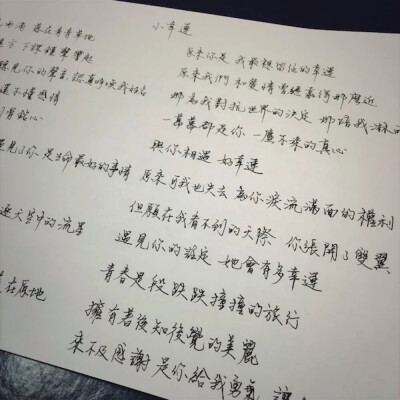 雨滴 落在青青草地
遠方 下課鐘聲響起
聽見你的聲音 認真呼喚我姓名
還不懂感情
貼心
見了你 是生命最好的事情 原來
逐天空中的流星
在原地
小幸運
原來你是 我最想留住的幸運
原來我們和愛情曾經靠得那麼近
那為我對抗世界的決定 那陪我淋的
一幕幕都是你 一塵不染的真心
與你相遇 好幸運
可我也失去 為你淚流滿面的權利
但願在我看不到的天際 你張開了雙翼
遇見你的註定 她會有多幸運
青春是段跌跌撞撞的旅行
擁有著後知後覺的美麗
來不及感謝 是你給我勇氣 讓